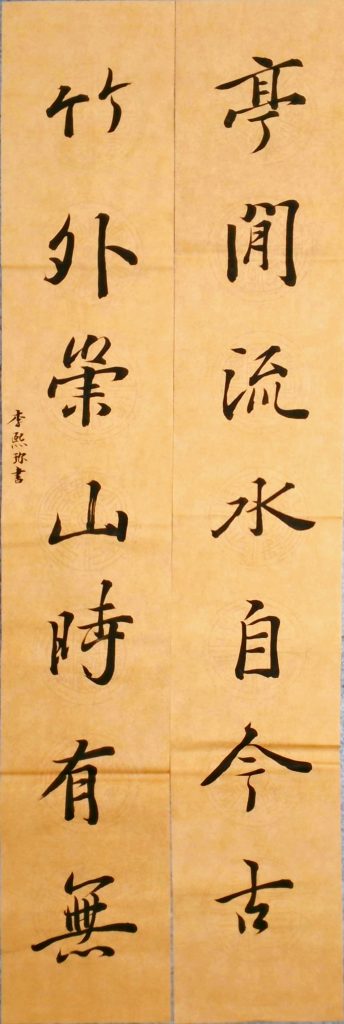 亭閒流水自今古
竹外崇山時有無
李熙書